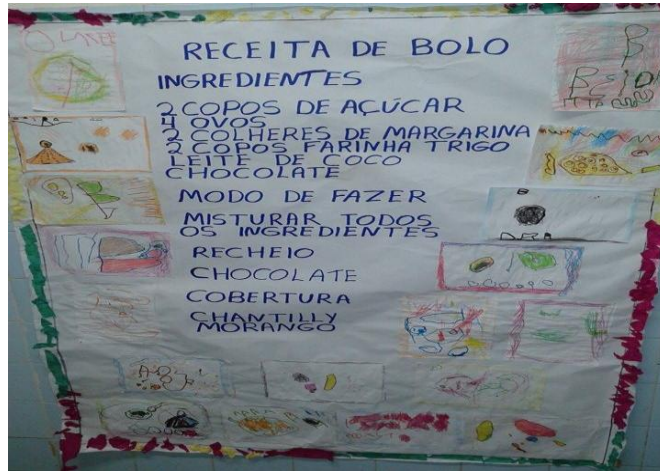 RECEITA DE BOLO
INGREDIENTES
2 COPOS DE AÇÚCAR
4 OVOS
2 COLHERES DE MARGARINA
2 COPOS FARINHA TRIGO
LEITE DE COCO
CHOCOLATE
MODO DE FAZER
MISTURAR TODOS
OS INGREDIENTES
RECHEIO
CHOCOLATE
COBERTURA
CHANTILLY
MORANGO